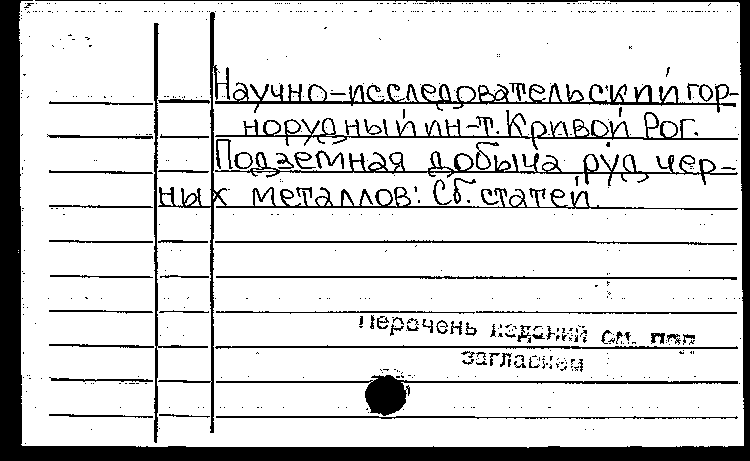 Научно-исследовательский гор-
норудный ин-т. Кривой Рог.
Подземная добыча руд чер-
ных металлов: Сб. статей.
Перечень изданий см. под
заглавием